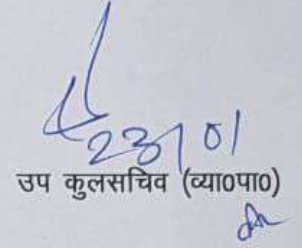 23/01
उप कुलसचिव (व्या०पा०)